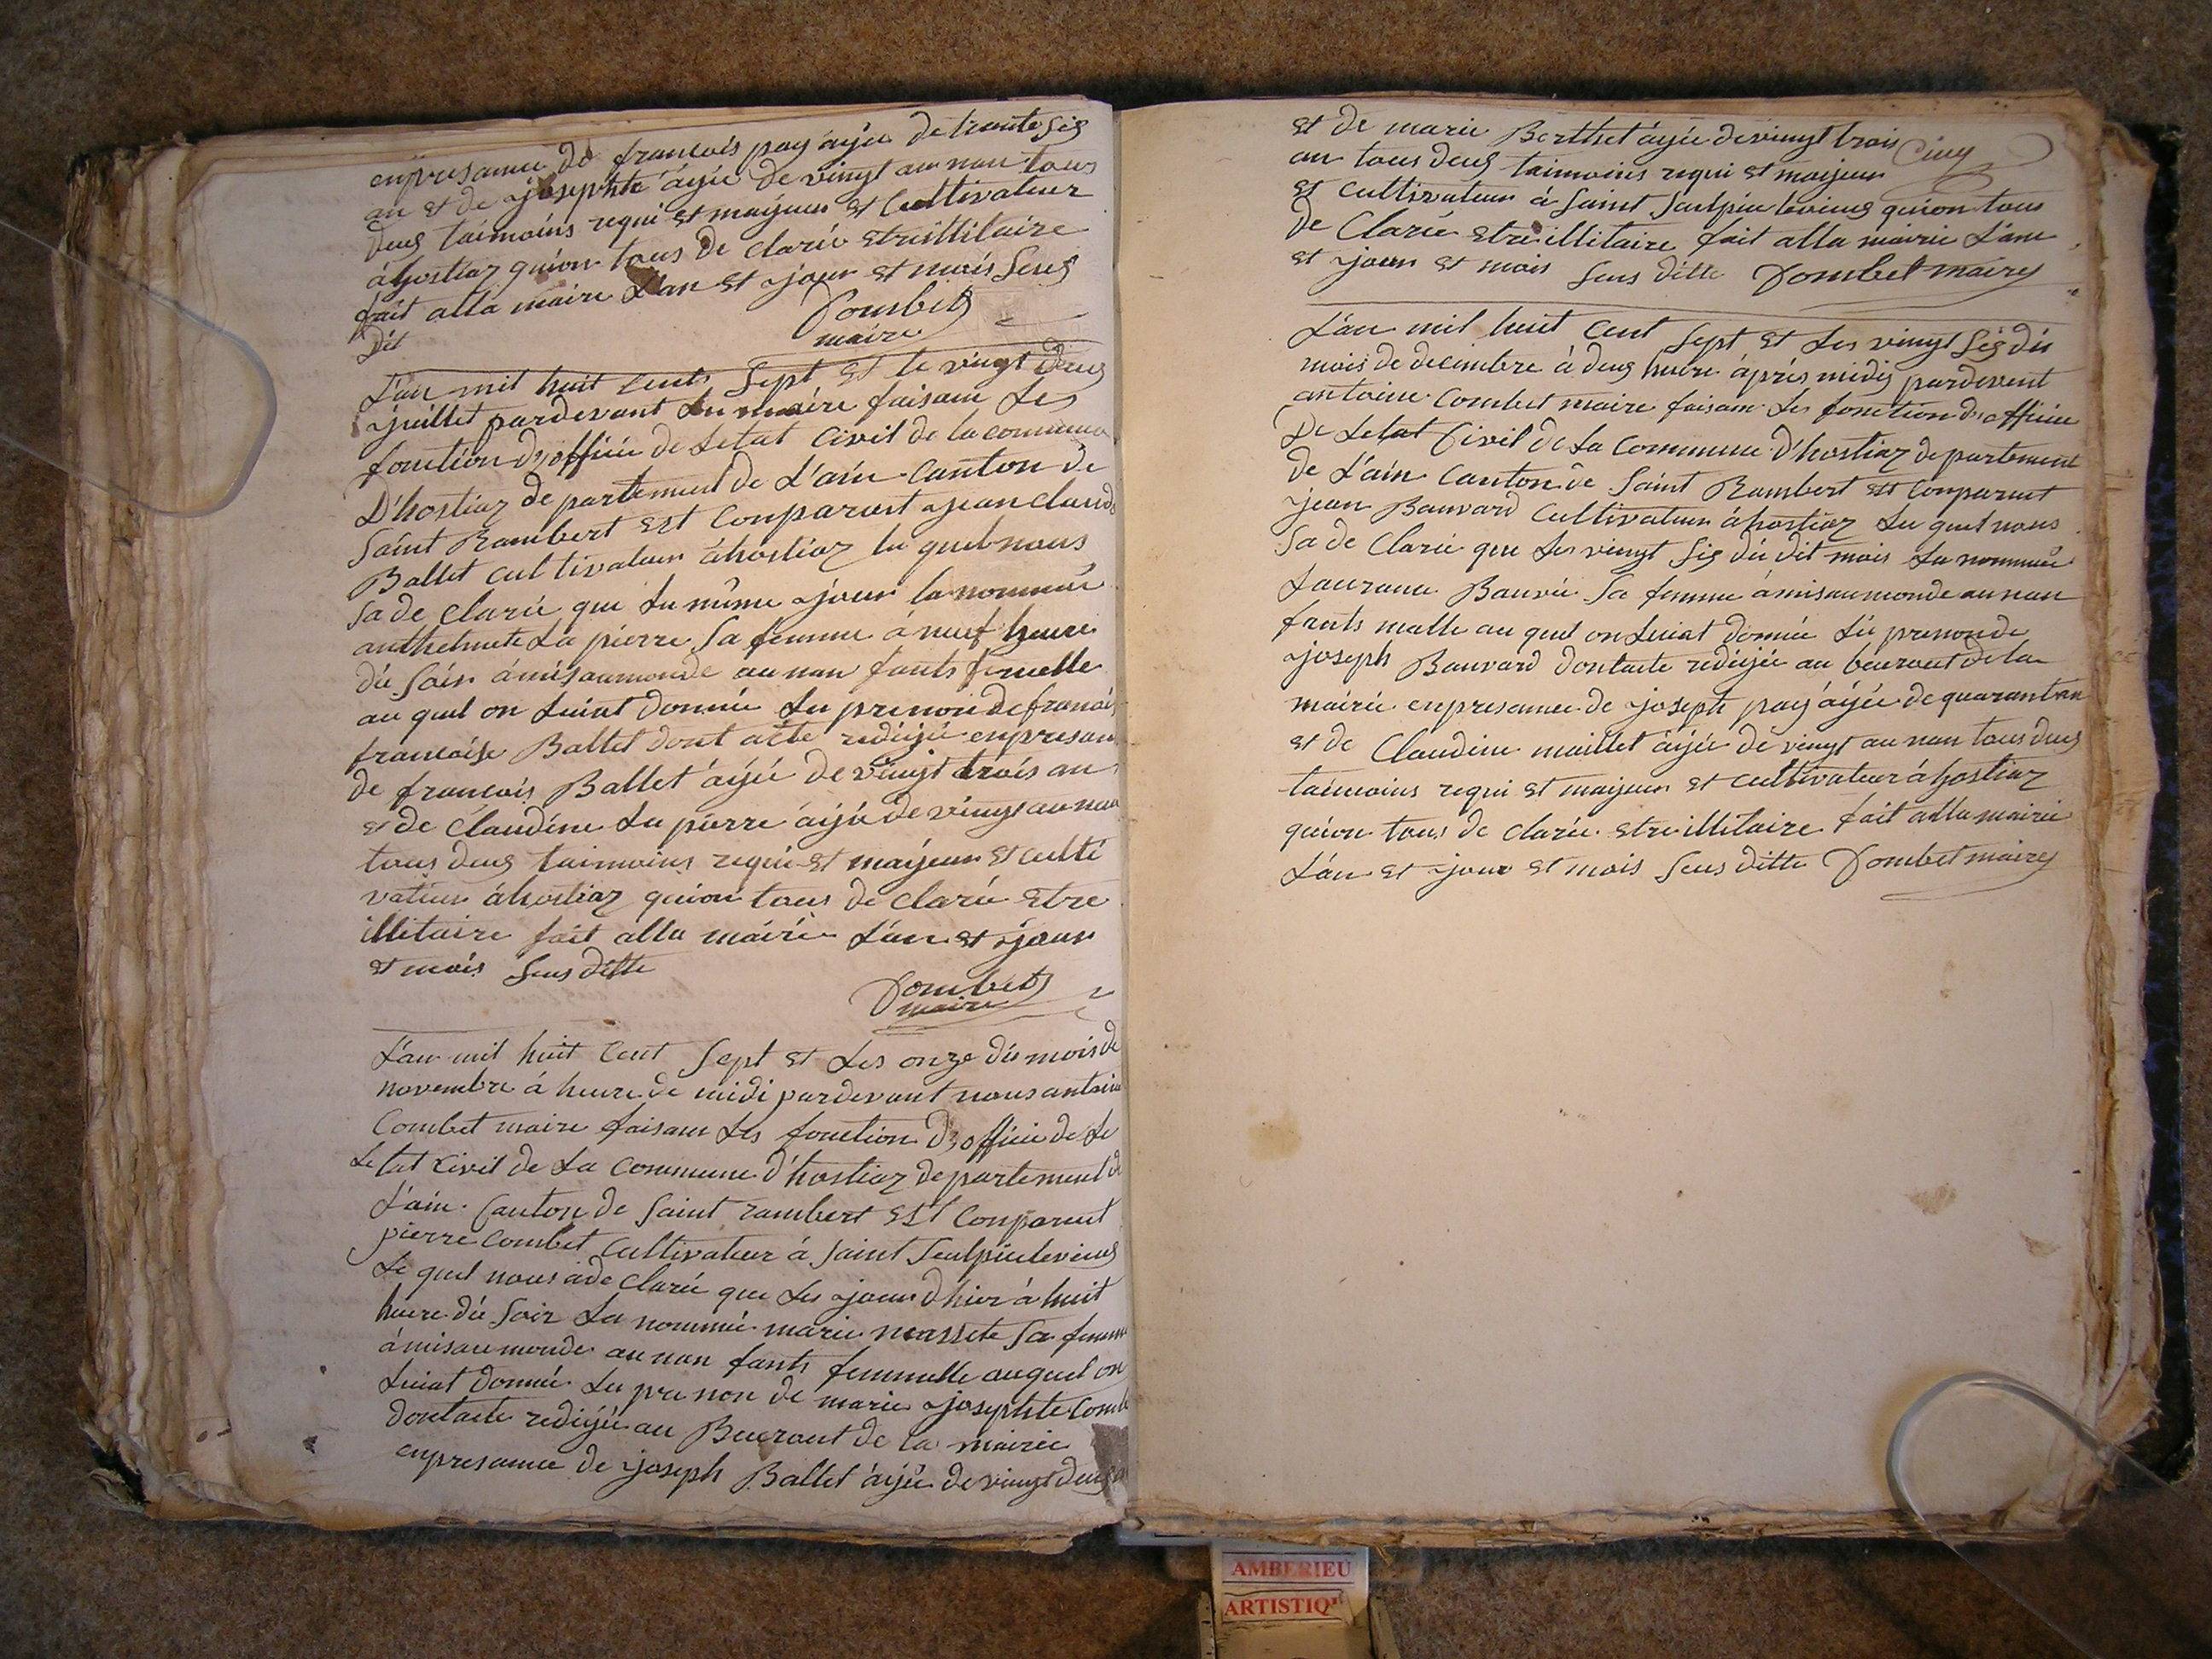 enpresance de francois pay ayée de trante sig
an et de josephte ayée de vingt au nan tous
deug taimoins requi et mayeur et Cultivateur
àhostiaz quion tous de clarée etreillitaire
fait alla maire L'an et jour et mois seug
dit
Combet
maire
L'an mil huit cents sept et le vingt deug
juillet pardevant Lu maire faisam Les
fonction d'officié de Letat civil de la commune
D'hostiaz departement de L'ain Canton de
Saint Rambert est Conparust jean claude
Ballet cultivateur àhostiaz lu quel nous
sa de clarée que Lu même jour la nommée
anthelmete La pierre sa femme à neuf heure
du soir àmisaumonde au nan fants femelle
au quel on Luiat donnée Lu prenon de francois
francoise Ballet dont acte redigée enpresan
de francois Ballet àyée de vingt trois an
et de Claudine Lu pierre àyée de vingt au nan
tous deug taimoins requi et mayeur et culti
vateur àhostiaz quion tous de clarée etre
illitaire fait alla mairie L'an et jour
et mois seus ditte
Combet
maire
L'an mil huit Cent sept et Les onze du mois de
novembre à heure de midi pardevant nous antoine
Combet maire faisam Les fonction d'officié de Le
Letat civil de La Commune d'hostiaz departement de
L'ain Canton de Saint rambert est Conparut
pierre Combet Cultivateur à Saint Seulpicelevieug
Le quel nous àde clarée que Les jour d'hier à huit
heure du soir La nommée marie massete sa femme
àmisaumonde au nan fants femmelle auquel on
Luiat donnée Lu pre non de marie josephte Comb
dontacte redigée au Bueraut de la mairie
enpresance de joseph Ballet àyée de vingt deug
et de marie Berthet àyée devingt trois Cinq
an tous deug taimoins requi et mayeur
et Cultivateur à Saint Seulpice levieug quion tous
de Clarée etreillitaire fait alla mairie L'an
et jour et mois seus ditte Combet maire
L'an mil huit Cent sept et Les vingt sig du
mois de decembre à deug heure àprés midij pardevent
antoine Combet maire faisam Les fonction d'officié
De Letat Civil de La Commune d'hostiaz departement
de L'ain Canton de Saint Rambert est Conparut
jean Bauvard Cultivateur àhostiaz Lu quel nous
sa de Clarée que Les vingt sig du dit mois La nommée
Laurance Bauvée sa femme àmisaumonde au nan
fants malle au quel on Luiat donnée Lu prenonde
joseph Bauvard dontacte redigée au beuraut de la
mairie enpresance de joseph pay àyée de quarant an
et de Claudine maillet àyée de vingt au nan tous deug
taimoins requi et mayeur et cultivateur àhostiaz
quion tous de clarée etreillitaire fait alla mairie
L'an et jour et mois seus ditte Combet maire
AMBERIEU
ARTISTIQ